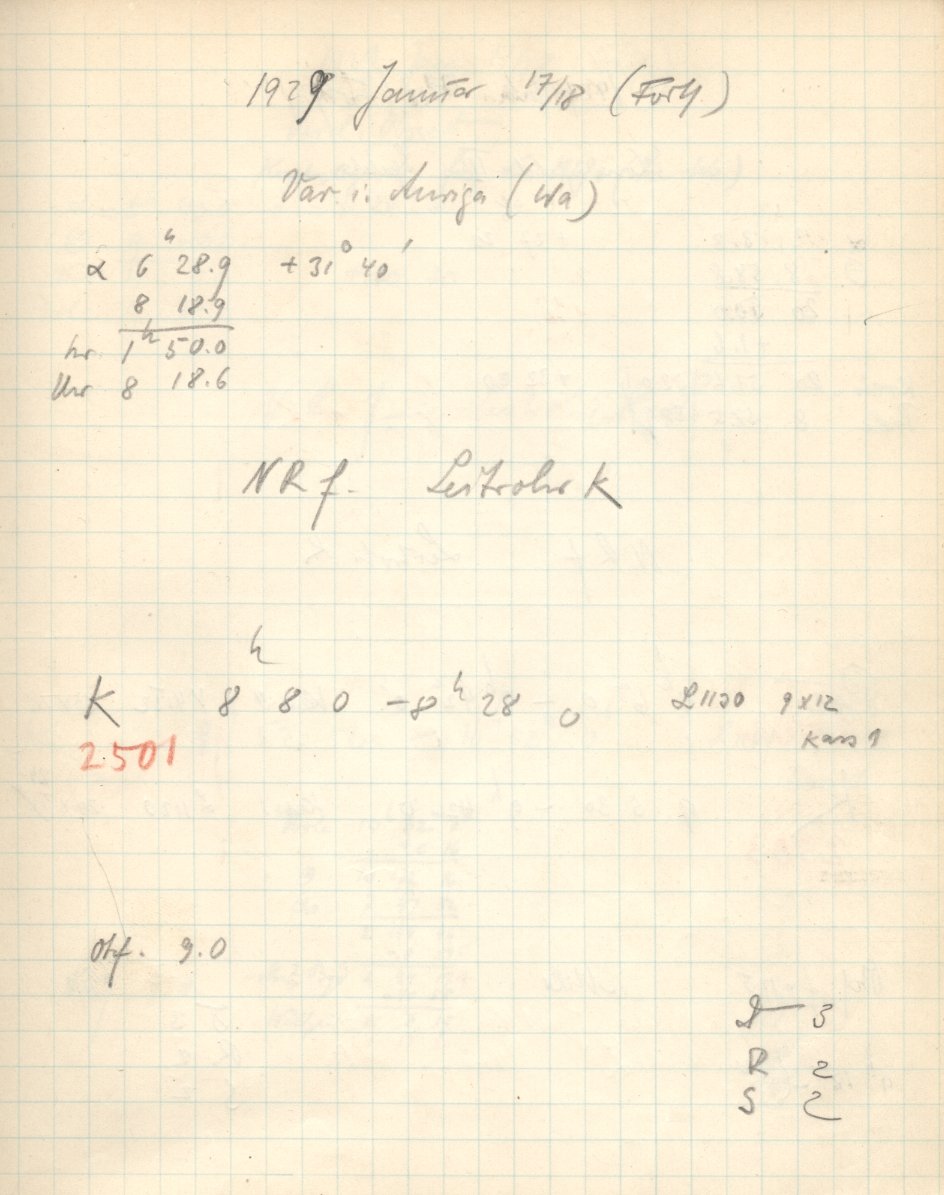 1929 Januar 17/18 (Forts.)
Var. i. Auriga (Wa)
α 6ʰ 28.9 +31° 40'
8 18.9
hr. 1ʰ 50.0
Uhr 8 18.6
NR f. Leitrohr K
K 8ʰ 8 0 - 8ʰ 28 0 L1120 9x12
Kass 1
2501
Obf. 9.0
D 3
R 2
S 2